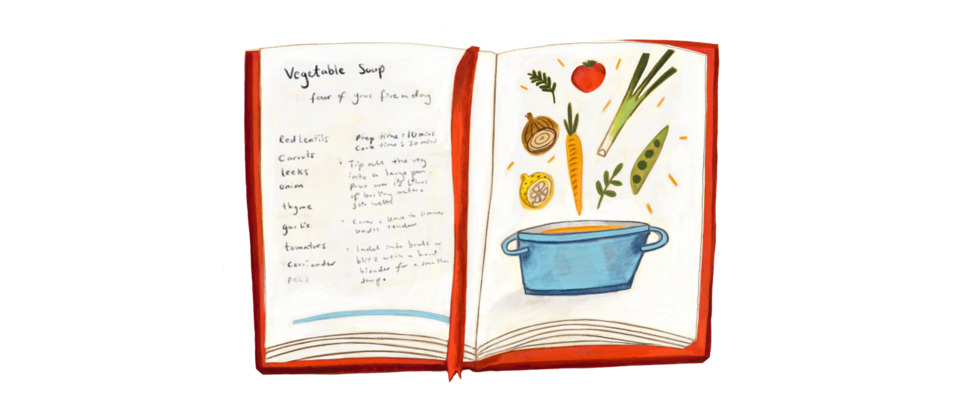 Vegetable Soup
four of your five a day
Red lentils
Carrots
leeks
onion
thyme
garlic
tomatoes
Corriander
peas
Prep time: 10 mins
Cook time: 30 mins
• Tip all the veg
into a large pan.
of boiling water.
• Cover + leave to simmer
until tender
• Ladel into bowls or
blitz with a hand
blender for a smoother
soup.